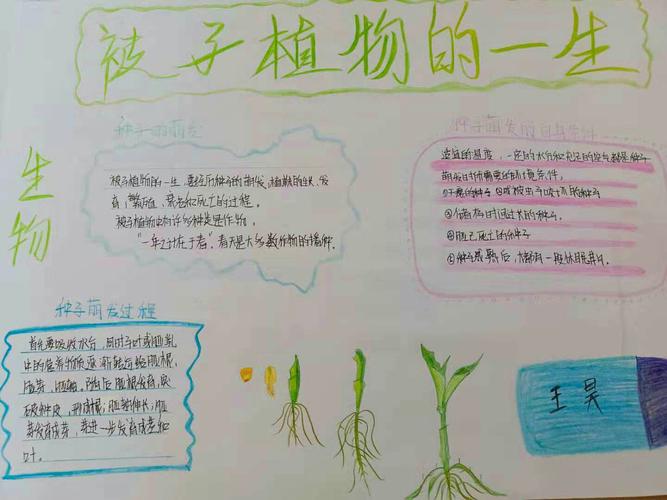 被子植物的一生
生物
种子的萌发
被子植物的一生，要经历种子的萌发，植株的生长、发
育、繁殖、衰老和死亡的过程。
被子植物中的许多种类是作物。
“一年之计在于春”，春天是大多数作物的播种
种子萌发的自身条件
适宜的温度，一定的水分和充足的空气都是种子
萌发时所需要的环境条件，
②储存时间过长的种子。
③胚已死亡的种子
④种子成熟后，大都有一段休眠期
种子萌发过程
首先要吸收水分，同时子叶或胚乳
中的营养物质逐渐转运给胚根、
胚芽、胚轴。随后胚根发育，突
破种皮，形成根，胚轴伸长，胚
芽发育成芽，芽进一步发育成茎和
叶。
王昊